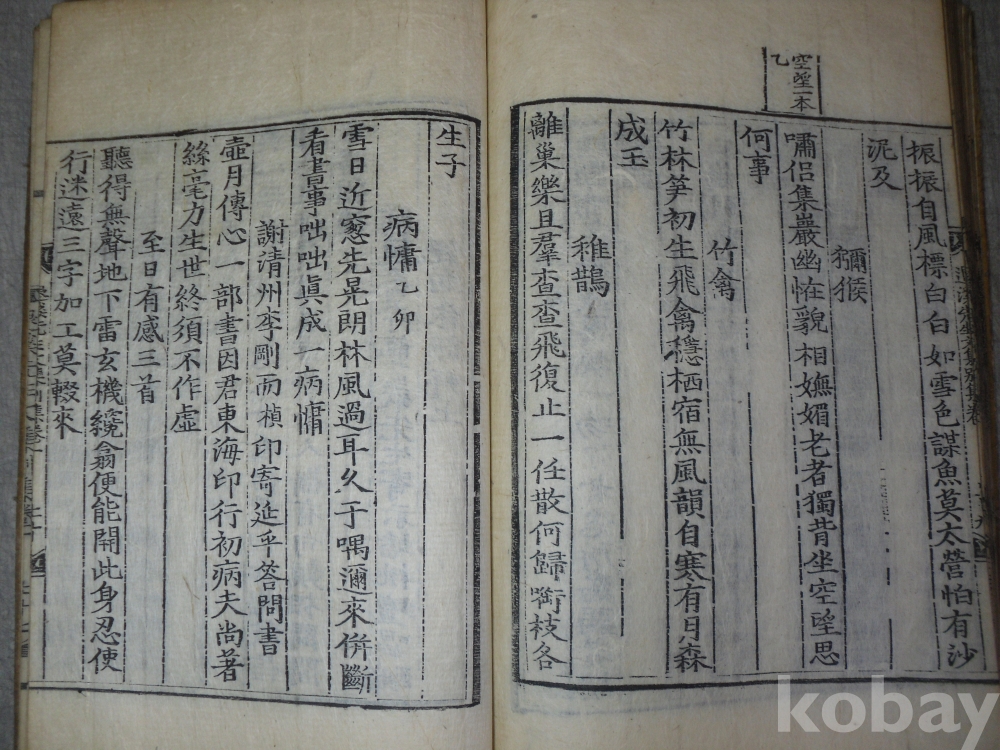 空望一本
乙
振振自風標白白如雪色謀魚莫太營怕有沙
泥及
獼猴
嘯侶集巖幽恠貌相嫵媚老者獨背坐空望思
何事
竹禽
竹林笋初生飛禽穩栖宿無風韻自寒有月森
成玉
稚鵲
離巢樂且羣查查飛復止一任散何歸㘅枝各
生子
病慵 乙卯
雪日近窓先晃朗林風過耳久于喁邇來併斷
看書事咄咄眞成一病慵
謝清州李剛而楨印寄延平答問書
壺月傳心一部書因君東海印行初病夫尚著
絲毫力生世終須不作虛
至日有感三首
聽得無聲地下雷玄機纔翕便能開此身忍使
行迷遠三字加工莫輟來
kobay